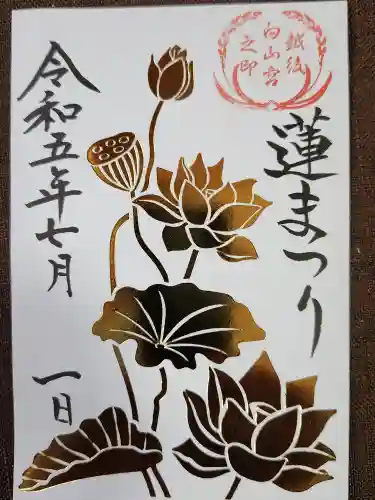 越後
白山宮
之印
蓮まつり
令和五年七月
一日